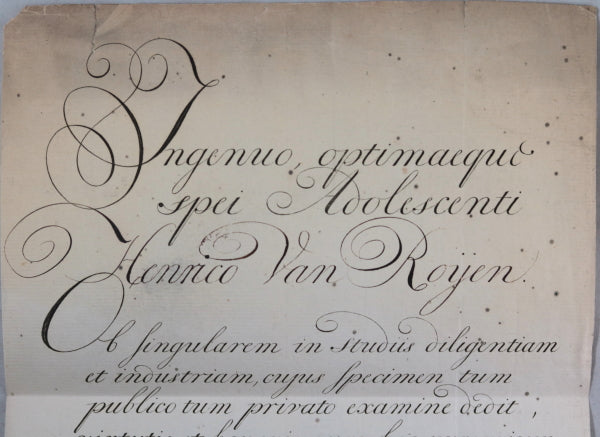 Ingenuo, optimaeque
spei Adolescenti
Henrico Van Roÿen.
Ob singularem in studiis diligentiam
et industriam, cujus specimen tum
publico tum privato examine dedit,